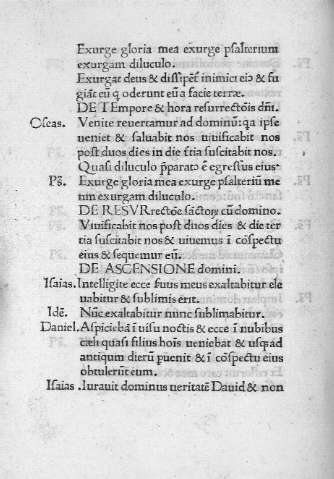 Exurge gloria mea exurge psalterium
exurgam diluculo.
Exurgat deus & dissipēt̄ inimici eiꝰ & fu
giāt eū q̄ oderunt eū a facie terræ.
DE TEmpore & hora resurrectōis dn̄i.
Oseas. Venite reuertamur ad dominū: qa ipse
ueniet & saluabit nos uiuificabit nos
post duos dies in die t̄tia suscitabit nos.
Quasi diluculo p̄paratꝰ ē egressus eius.
Ps̄. Exurge gloria mea exurge psalteriū me
um exurgam diluculo.
DE RESVRrectōe sāctoꝝ cū domino.
Viuificabit nos post duos dies & die ter
tia suscitabit nos & uiuemus ī cōspectu
eius & sequemur eū.
DE ASCENSIONE domini.
Isaias. Intelligite ecce s̄uus meus exaltabitur ele
uabitur & sublimis erit.
Idē. Nūc exaltabitur nunc sublimabitur.
Daniel. Aspiciebā ī uisu noctis & ecce ī nubibus
cæli quasi filius hoīs ueniebat & usqꝫ ad
antiquum dierū puenit & ī cōspectu eius
obtulerūt eum.
Isaias . Iurauit dominus ueritatē Dauid & non